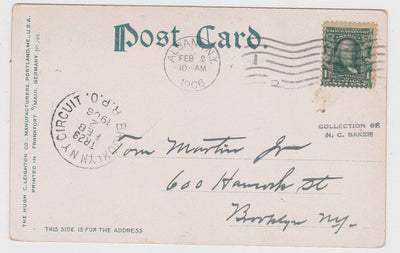 Post Card.
ALBANY, N.Y.
FEB 2
10-AM
1906
COLLECTION OF
N. C. BAKER
BROOKLYN N.Y. CIRCUIT. R.P.O.
FEB
1906
Tom Martin Jr
600 Hancock st
Brooklyn Ny.
THIS SIDE IS FOR THE ADDRESS
THE HUGH C. LEIGHTON CO. MANUFACTURERS, PORTLAND, ME., U.S.A.
PRINTED IN FRANKFORT o/MAIN, GERMANY. No.